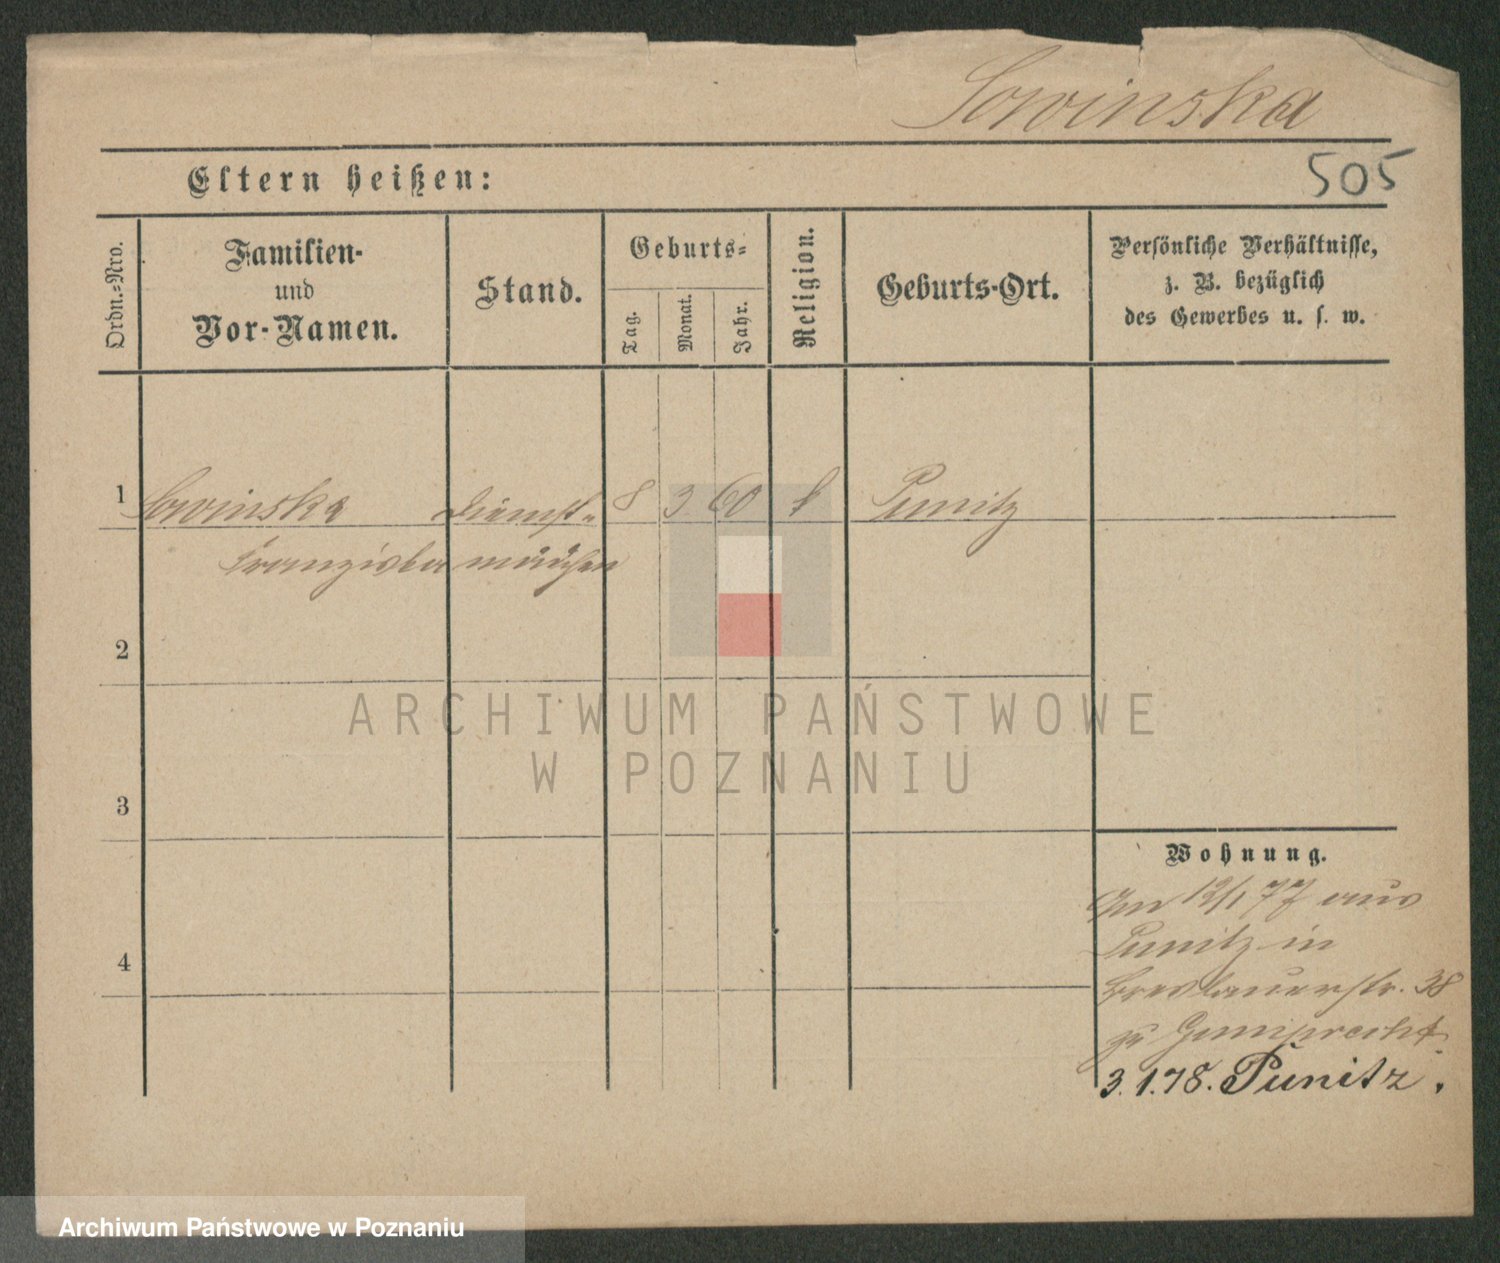 Sowinska
505
Eltern heißen:
Ordn.-Nro.
Familien-
und
Vor-Namen.
Stand.
Geburts-
Tag.
Monat.
Jahr.
Religion.
Geburts-Ort.
Persönliche Verhältnisse,
z. B. bezüglich
des Gewerbes u. s. w.
1 Sowinska Dienst- 8 3 60 k Punitz
Franziska mädchen
2
3
4
ARCHIWUM PAŃSTWOWE
W POZNANIU
Wohnung.
Am 12/1 77 aus
Punitz in
Breslauerstr. 38
zu Gumprecht
3.1.78. Punitz.
Archiwum Państwowe w Poznaniu